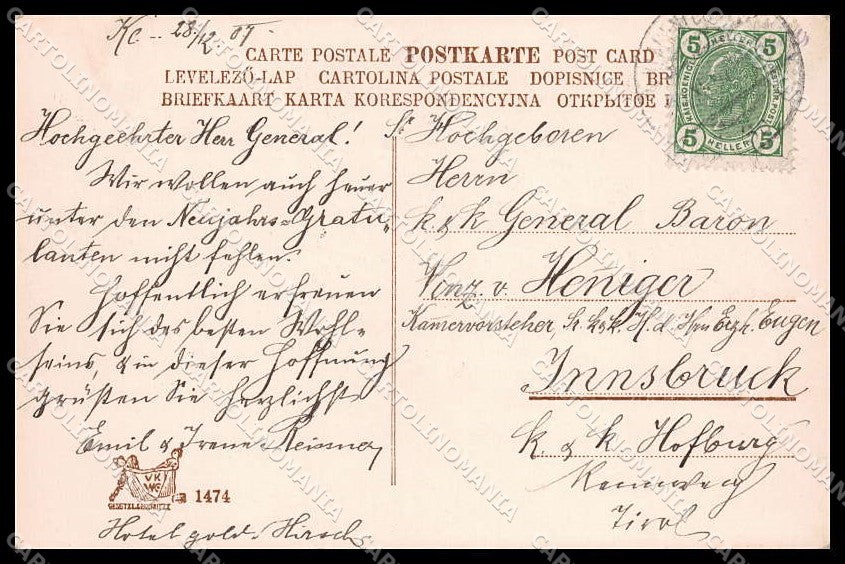 Kc.. 28./12 07.
CARTE POSTALE POSTKARTE POST CARD
LEVELEZŐ-LAP CARTOLINA POSTALE DOPISNICE BR
BRIEFKAART KARTA KORESPONDENCYJNA ОТКРЫТОЕ
5 HELLER 5
5 HELLER 5
Hochgeehrter Herr General!
Wir wollen auch heuer
unter den Neujahrs=Gratu„
lanten nicht fehlen.
Hoffentlich erfreuen
Sie sich des besten Wohl=
seins, & in dieser Hoffnung
grüßen Sie herzlichst
Emil & Irene
VK
WC
1474
Hotel gold. Hirsch
Sr Hochgeboren
Herrn
k & k General Baron
Vinz v. Heniger
Kamervorsteher, Sr k&k. H. d. Hrn Erzh. Eugen
Innsbruck
k & k Hofburg
Rennweg
Tirol
CARTOLINOMANIA